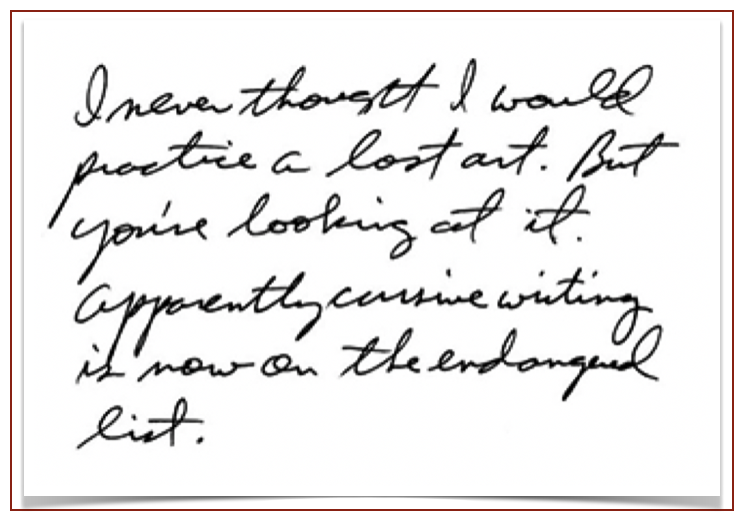 I never thought I would
practice a lost art. But
you're looking at it.
Apparently cursive writing
is now on the endangered
list.